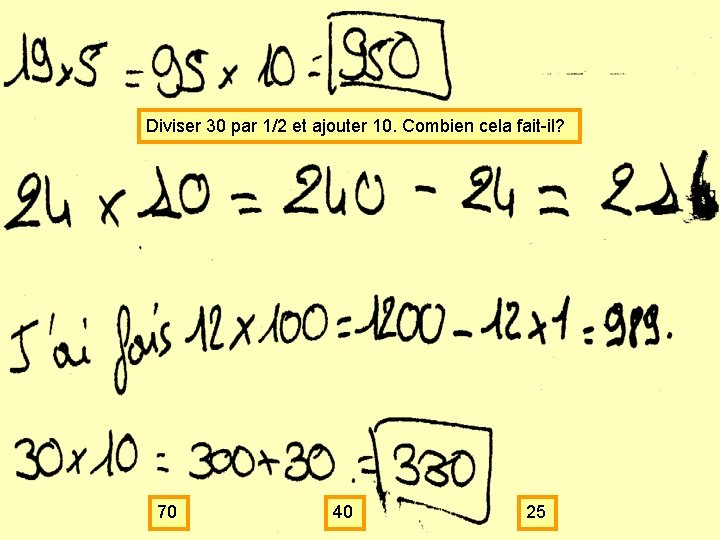 19 x 5 = 95 x 10 = 950
Diviser 30 par 1/2 et ajouter 10. Combien cela fait-il?
24 x 10 = 240 - 24 = 216
J'ai fais 12 x 100 = 1200 - 12 x 1 = 989.
30 x 10 = 300 + 30 . = 330
70 40 25